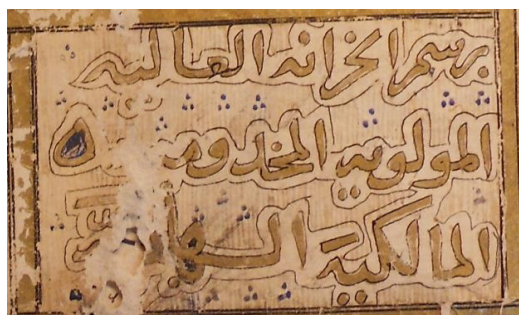 برسم الخزانه العاليه
المولويه المخدوميه
المالكية